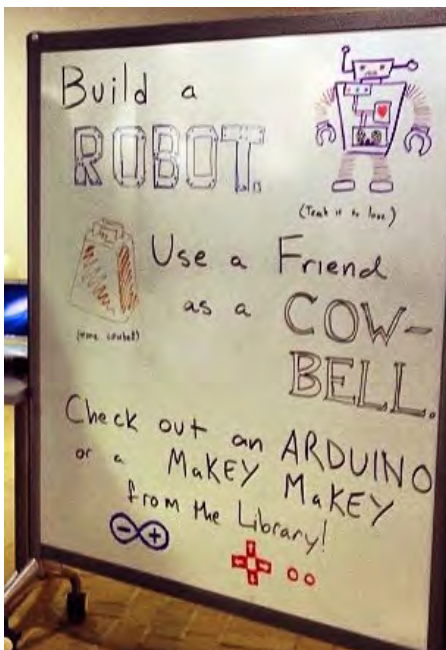 Build a
ROBOT.
(Teach it to love)
Use a Friend
as a COW-
BELL.
(more cowbell)
Check out an ARDUINO
or a MaKEY MaKEY
from the Library!